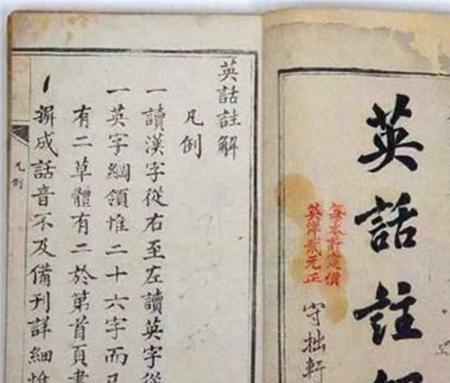 英話註
每本計定價
守拙軒
英話註解
凡例
一讀漢字從右至左讀英字從
一英字綱領惟二十六字而
有二草體有二於第首頁
成話音不及備刊詳細惟
凡例